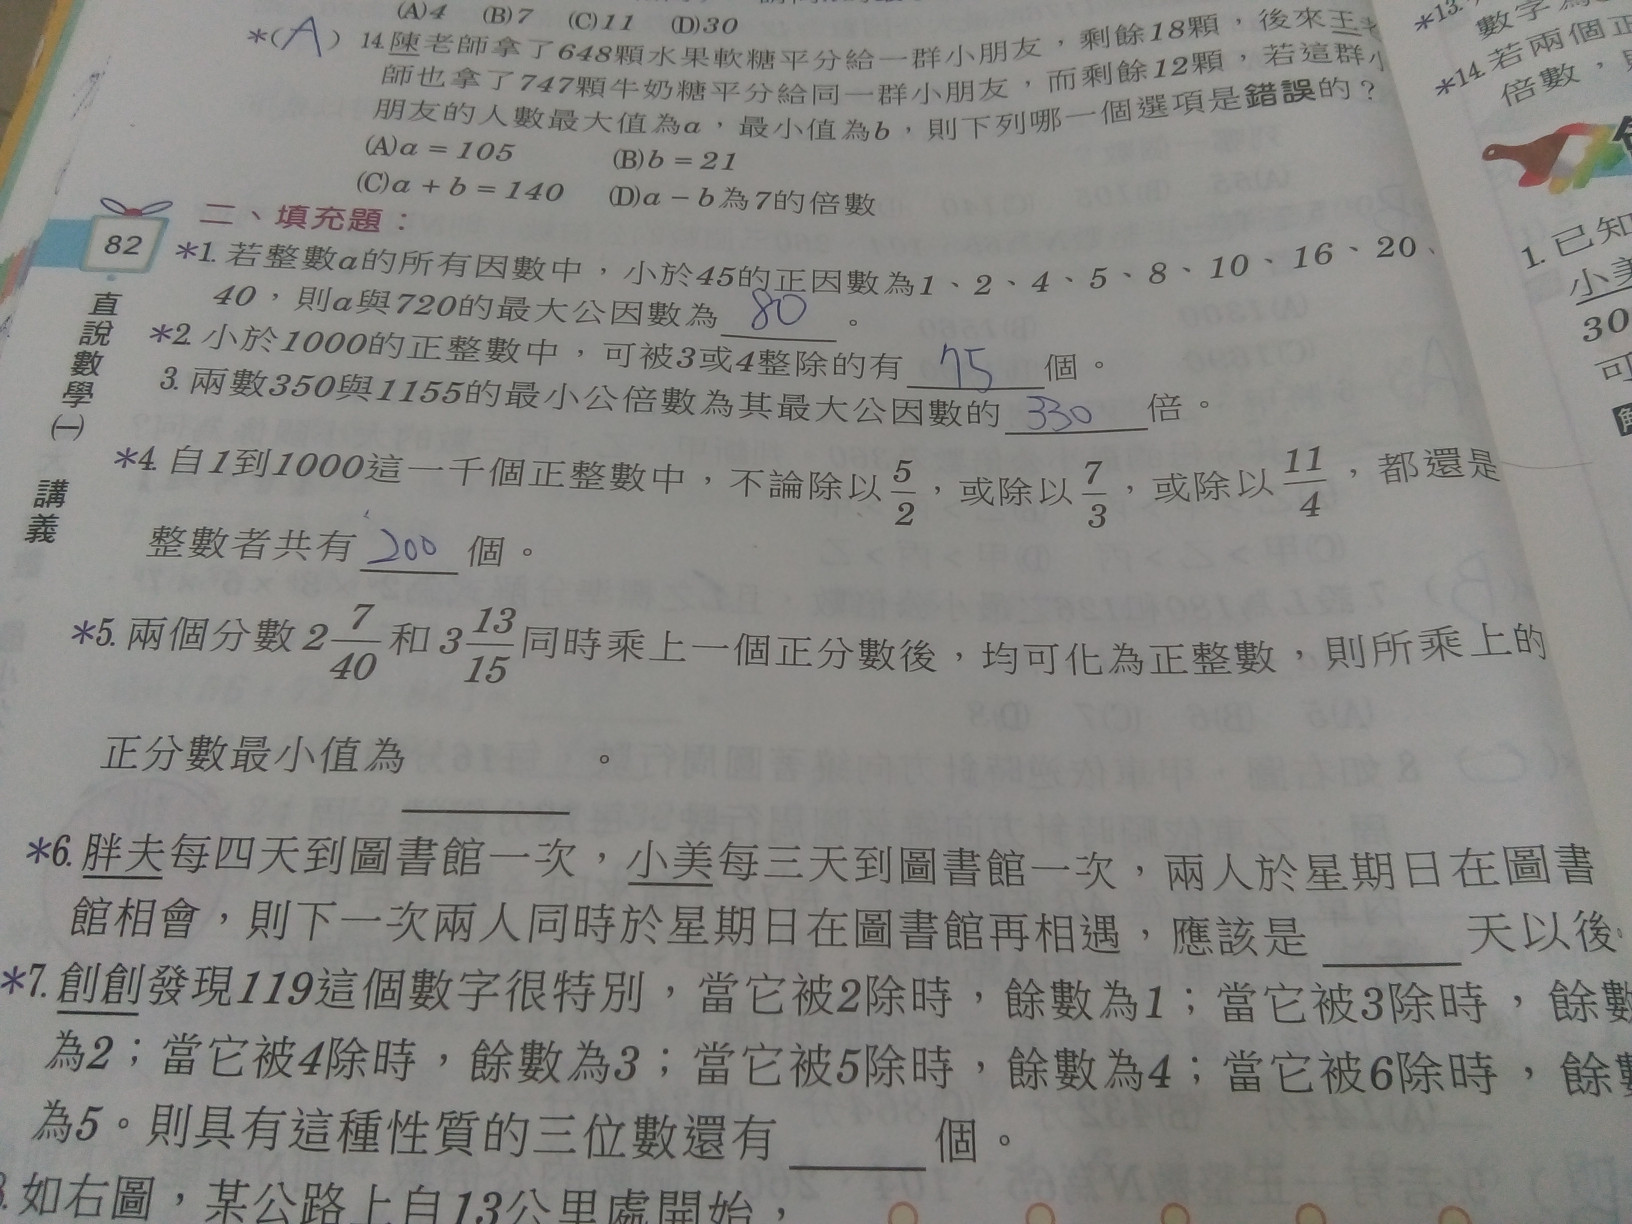 (A)4 (B)7 (C)11 (D)30
*(A) 14.陳老師拿了648顆水果軟糖平分給一群小朋友，剩餘18顆，後來王老
師也拿了747顆牛奶糖平分給同一群小朋友，而剩餘12顆，若這群小
朋友的人數最大值為a，最小值為b，則下列哪一個選項是錯誤的？
(A)a = 105 (B)b = 21
(C)a + b = 140 (D)a − b為7的倍數
二、填充題：
*1.若整數a的所有因數中，小於45的正因數為1、2、4、5、8、10、16、20、
40，則a與720的最大公因數為 80 。
*2.小於1000的正整數中，可被3或4整除的有 75 個。
3.兩數350與1155的最小公倍數為其最大公因數的 330 倍。
*4.自1到1000這一千個正整數中，不論除以5/2，或除以7/3，或除以11/4，都還是
整數者共有 200 個。
*5.兩個分數2 7/40和3 13/15同時乘上一個正分數後，均可化為正整數，則所乘上的
正分數最小值為 。
*6.胖夫每四天到圖書館一次，小美每三天到圖書館一次，兩人於星期日在圖書
館相會，則下一次兩人同時於星期日在圖書館再相遇，應該是 天以後。
*7.創創發現119這個數字很特別，當它被2除時，餘數為1；當它被3除時，餘數
為2；當它被4除時，餘數為3；當它被5除時，餘數為4；當它被6除時，餘數
為5。則具有這種性質的三位數還有 個。
8.如右圖，某公路上自13公里處開始，
82
直說數學(一)
講義
*13.
數字為
*14.若兩個正
倍數，
1.已知
小美
30
可
解